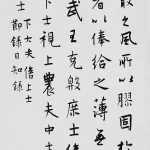 取之風所以膠固於
者以俸給之薄
武王克殷庶士倍
下士視上農夫中士
下大夫倍上士
士節錄日知錄